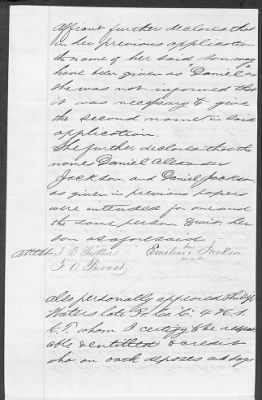 Affiant further declares that
in her previous application
the name of her said son may
have been given as "Daniel" as
she was not informed that
it was necessary to give
the second name in said
application.
She further declares that the
name Daniel Alexander
Jackson and Daniel Jackson
as given in previous papers
were intended for one and
the same person Daniel her
son as aforesaid
attest Emeline her Jackson
mark
Also personally appeared Philip
Waters late H. Co C. 4 U.S.
C.T. whom I certify to be respect
able & entitled to credit
who on oath deposes and says